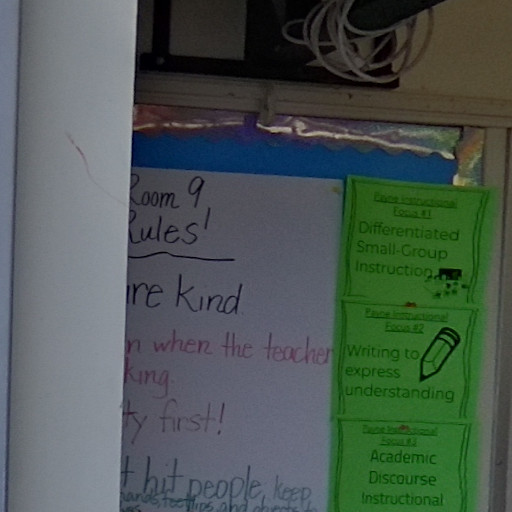 Room 9
Rules!
are kind
n when the teacher
king.
ty first!
t hit people, keep
hands, feet, lips, and objects to
Payne Instructional
Focus #1
Differentiated
Small-Group
Instruction
Payne Instructional
Focus #2
Writing to
express
understanding
Payne Instructional
Focus #3
Academic
Discourse
Instructional